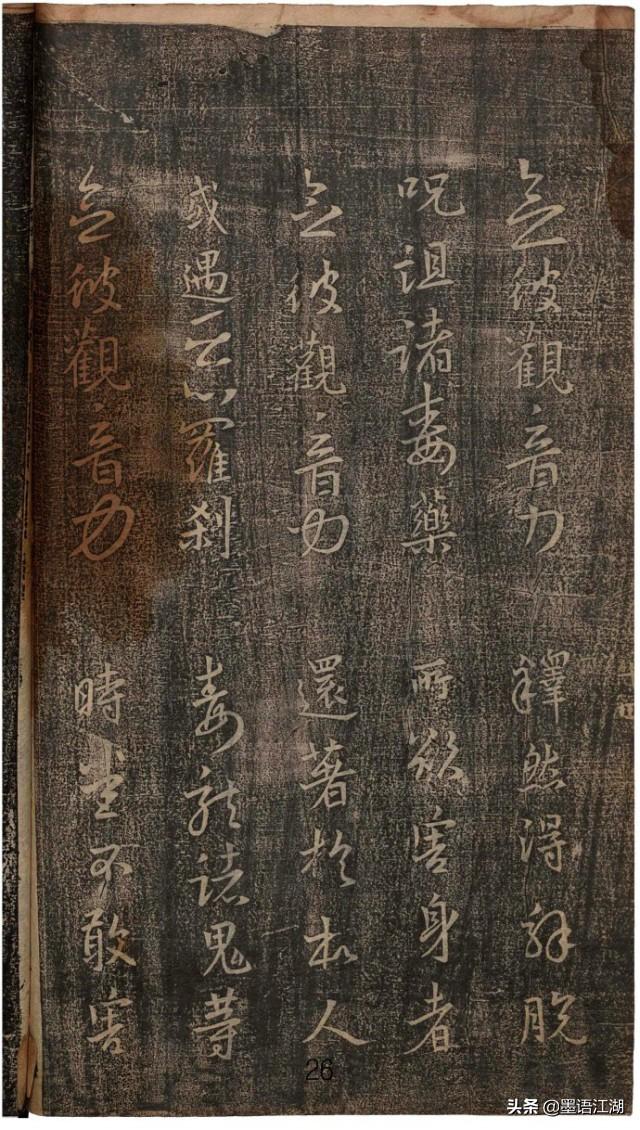 念彼觀音力 釋然得解脫
呪詛諸毒藥 所欲害身者
念彼觀音力 還著於本人
或遇惡羅剎 毒龍諸鬼等
念彼觀音力 時悉不敢害
26
头条 @墨语江湖